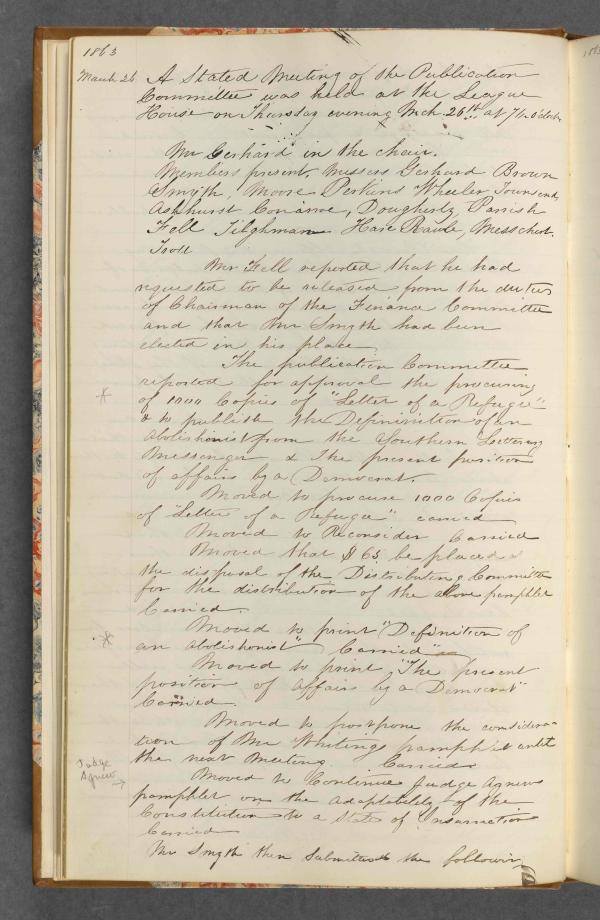 1863
March 26 A Stated Meeting of the Publication
Committee was held at the League
House on Thursday evening Mch 26th at 7½ o'clock
Mr Gerhard in the chair.
Members present. Messrs Gerhard Brown
Smyth, Moore Perkins Wheeler Townsend,
Ashhurst Conarroe, Dougherty, Parrish
Fell Tilghman Hare Rawle, Messchert.
Mr Fell reported that he had
requested to be released from the duties
of Chairman of the Finance Committee
and that Mr Smyth had been
elected in his place
The publication Committee
reported for approval the procuring
of 1000 Copies of "Letter of a Refugee"
& to publish the Definition of an
Abolishonist from the Southern Literary
Messenger & The present position
of affairs by a Democrat.
Moved to procure 1000 Copies
of "Letter of a Refugee" carried
Moved to Reconsider Carried
Moved that $63 be placed at
the disposal of the Distributing Committee
for the distribution of the above pamphlet
Carried.
Moved to print "Definition of
an Abolishonist" Carried
Moved to print "The present
position of Affairs by a Democrat"
Carried.
Moved to postpone the considera-
tion of Mr Whitings pamphlet until
the next Meeting. Carried
Judge
Agnew
Moved to Continue Judge Agnews
pamphlet on the adaptability of the
Constitution to a State of Insurrection
Carried
Mr Smyth then Submitted the followin